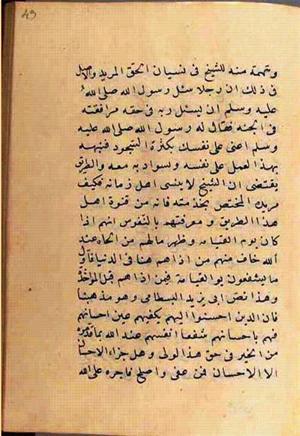 49
وتهمة منه للشيخ في نسيان الحق المريد والاصل
في ذلك ان رجلا سئل رسول الله صلى الله
عليه وسلم ان يسئل ربه في حقه مرافقته
في الجنه فقال له رسول الله صلى الله عليه
وسلم اعنى على نفسك بكثرة السجود فنبهه
بهذا العمل على نفسه وبسواد به معه والطرق
يقتضى ان الشيخ لا ينسى اهل زمانه فكيف
مريده المختص بخدمته فانه من فتوة اهل
هذا الطريق ومعرفتهم بالنفوس انهم اذا
كان يوم القيامة وظهر ما لهم من الجاه عند
الله خاف منهم من اذاهم هنا في الدنيا فاول
ما يشفعون يوم القيامة فيمن اذاهم قبل المؤاخذة
وهذا نص ابى يزيد البسطامى وهو مذهبنا
فان الذين احسنوا اليهم يكفيهم عين احسانهم
فهم باحسانهم شفعا انفسهم عند الله بما قدموه
من الخير في حق هذا الولى وهل جزاء الاحسان
الا الاحسان فمن عفى واصلح فاجره على الله